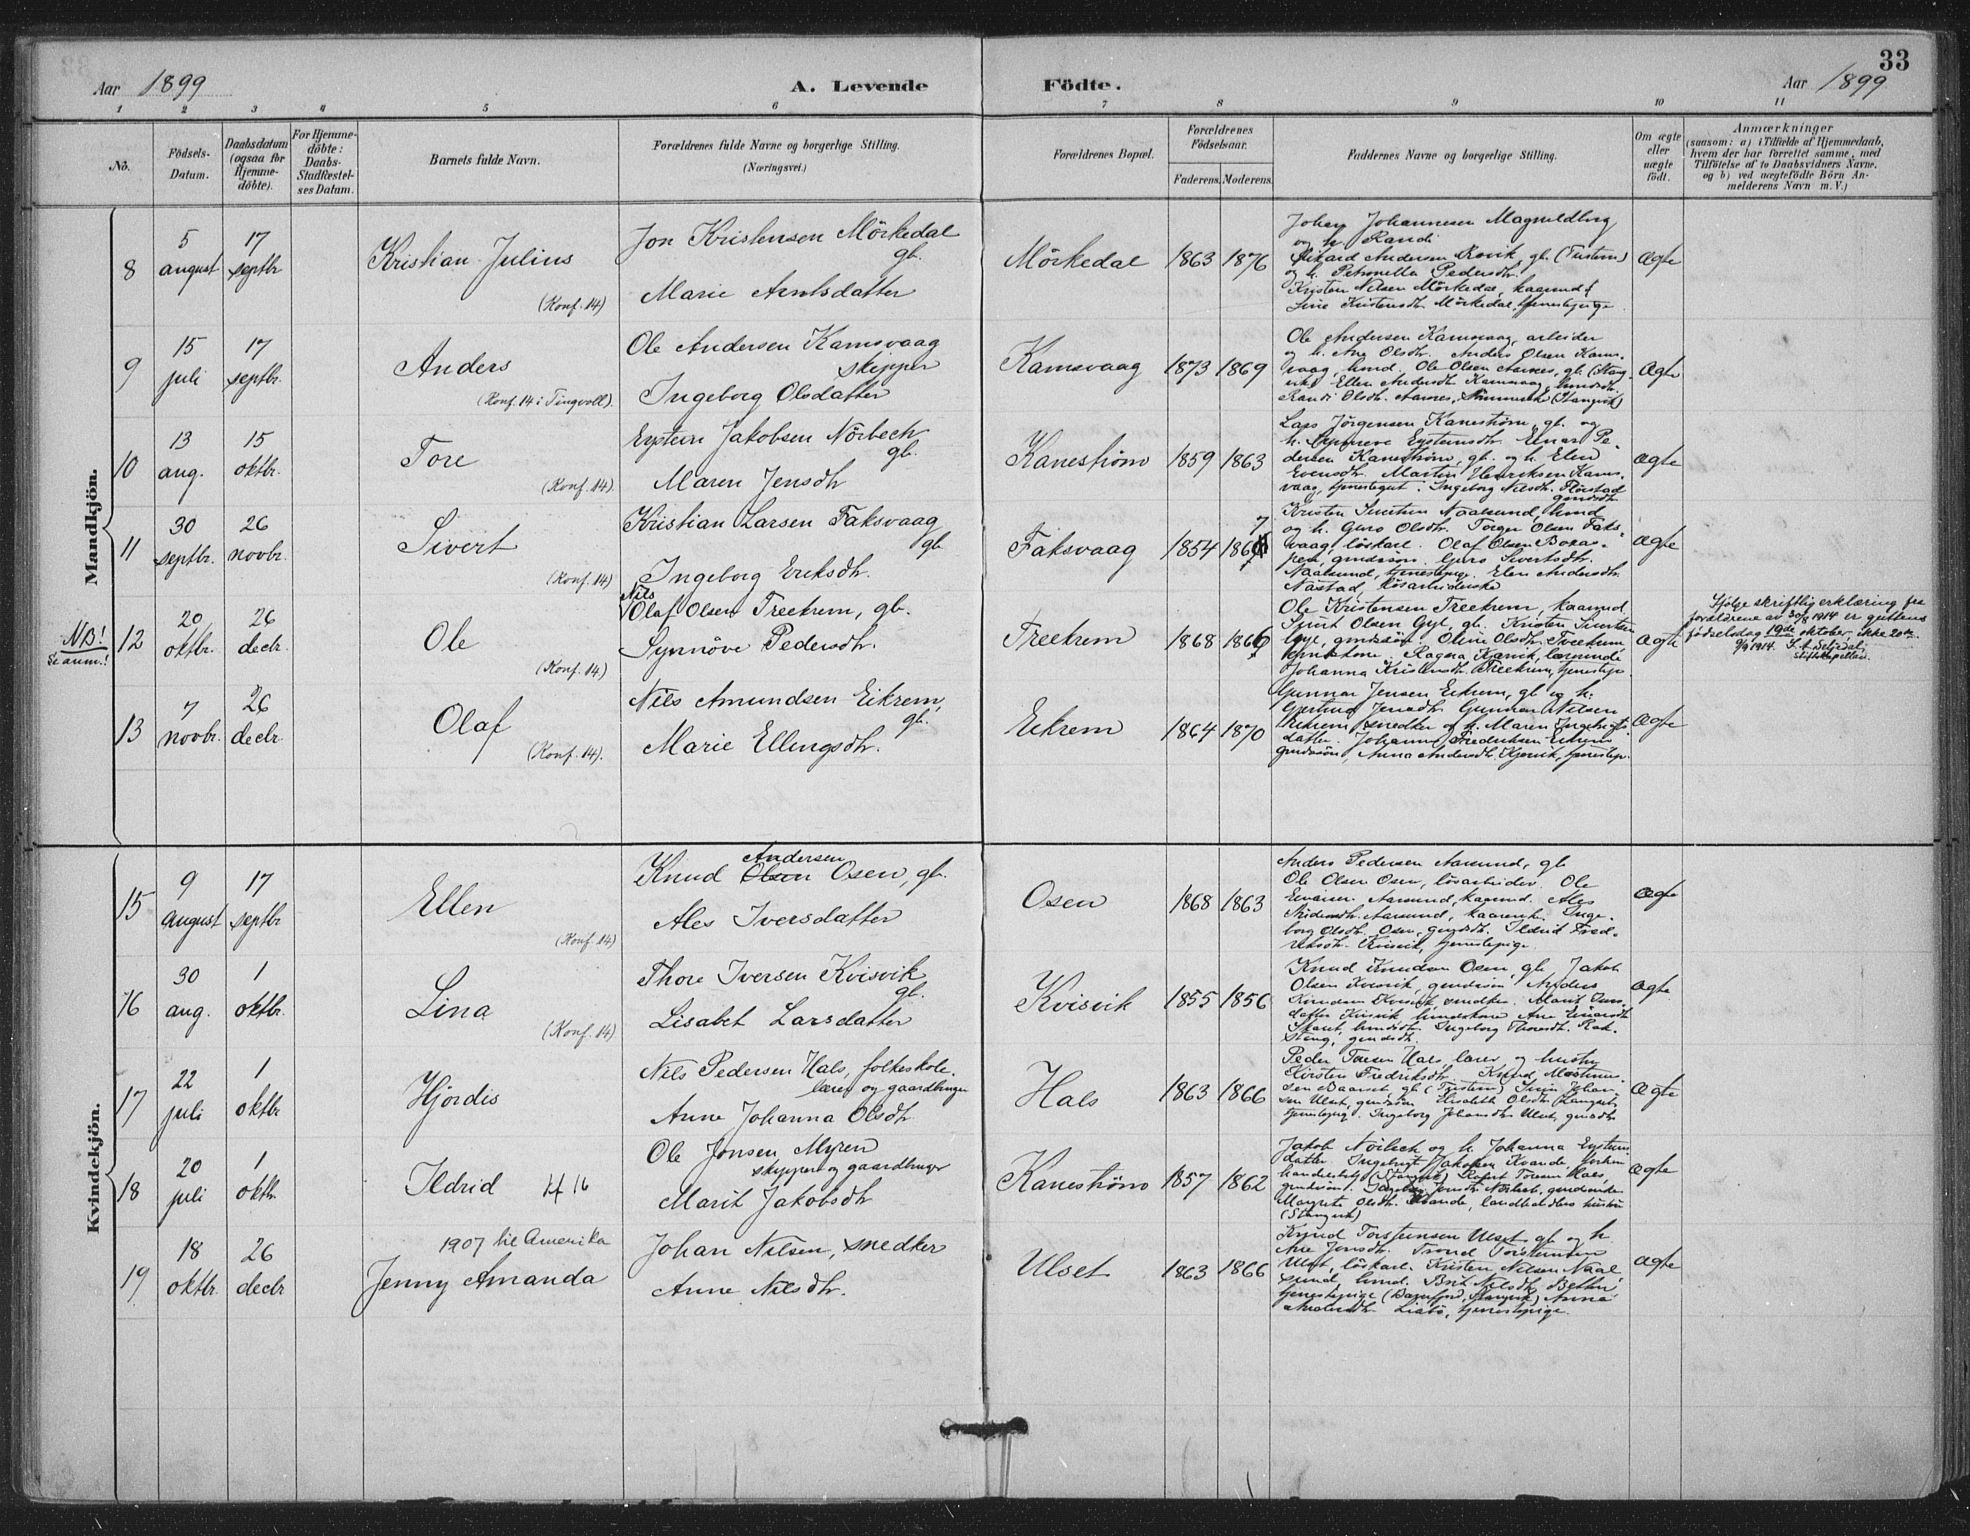 33
Aar 1899 A. Levende Födte. Aar 1899
1 2 3 4 5 6 7 8 9 10 11
No. Födsels-Datum. Daabsdatum (ogsaa for Hjemme-döbte). For Hjemme-döbte: Daabs-Stadfæstelses Datum. Barnets fulde Navn. Forældrenes fulde Navne og borgerlige Stilling. (Næringsvei.) Forældrenes Bopæl. Forældrenes Födselsaar. Faderens. Moderens. Faddernes Navne og borgerlige Stilling. Om ægte eller uægte födt. Anmærkninger
(saasom: a) i Tilfælde af Hjemmedaab, hvem der har forrettet samme, med Tilföielse af to Daabsvidners Navne, og b) ved uægtefödte Börn Anmelderens Navn m. V.)
Mandkjön.
8 5 august 17 septbr. Kristian Julius (Konf. 14)
Jon Kristensen Mörkedal gb.
Marie Arntsdatter
Mörkedal 1863 1876
Johan Johannesen Magnildberg
og h. Randi
Andersen Rovik, gb. (Tustern)
og h. Petronella Pedersdtr.
Kristen Nilsen Mörkedal, kaarmd.
Line Kristensdtr. Mörkedal, tjenestepige
ægte
9 15 juli 17 septbr. Anders (Konf. 14 i Tingvoll).
Ole Andersen Kamsvaag
skipper
Ingeborg Olsdatter
Kamsvaag 1873 1869
Ole Andersen Kamsvaag, arbeider
og h. Ane Olsdtr. Anders Olsen Kams-
vaag, hmd. Ole Olsen Aarnes, gb. (Stang-
vik) Ellen Andersdtr. Kamsvaag, hmdsdtr.
Randi Olsdtr. Aarnes, (Stangvik)
ægte
10 13 aug. 15 oktbr. Tore (Konf. 14).
Eystein Jakobsen Nörbech
gb.
Maren Jensdtr
Kanestrøm 1859 1863
Lars Jörgensen Kanestrøm, gb. og
h. Synneve Eysteinsdtr. Einar Pe-
dersen Kanestrøm, gb. og h. Elen
Evensdtr. Martin Henriksen Kams-
vaag, tjenestegut. Ingeborg Nilsdtr. Flöistad
gmdsdtr.
ægte
11 30 septbr. 26 novbr. Sivert (Konf. 14)
Kristian Larsen Faksvaag
gb.
Ingeborg Eriksdtr.
Faksvaag 1854 186 7
Kristen Naalsund, hmd
og h. Guro Olsdtr. Torger Olsen Faks-
vaag, löskarl. Olaf Olsen Boxas-
pen, gmdssön. Guro Sivertsdtr.
Naalsund, tjenestepige. Elen Andersdtr.
Nastad, lösarbeiderske
ægte
NB! Se anm.! 12 20 oktbr. 26 decbr. Ole (Konf. 14)
Nils
Olaf Olsen Treekrem, gb.
Synnöve Pedersdtr.
Treekrem 1868 1866
Ole Kristensen Treekrem, kaarmd.
Sjurt Olsen Gyl, gb. Kristen Sivertsen
Gyl, gmdssön. Oline Olsdtr. Treekrem
Ragna Kjøsvik, lærerinde
Johanna Kristensdtr. Treekrem, tjenestepige
ægte
Ifölge skriftlig erklæring fra
forældrene av 30/8 1914 er guttens
födselsdag 19de oktober, ikke 20de.
1/9 1914.
Stiftskapellan.
13 7 novbr. 26 decbr. Olaf (Konf. 14).
Nils Amundsen Eikrem,
gb.
Marie Ellingsdtr.
Eikrem 1864 1870
Gunnar Jensen Eikrem, gb. og h.
Gjertrud Jensdtr. Gunnar Nilsen
Eikrem, snedker og h. Maren Ingebrigts-
datter. Johannes Fredriksen Eikrem
gmdssön, Anna Andersdtr. Kjørvik, tjenestep.
ægte
Kvindekjön.
15 9 august 17 septbr. Ellen (Konf. 14)
Andersen
Knud Olsen Osen, gb.
Ales Iversdatter
Osen 1868 1863
Anders Pedersen Aarsund, gb
Ole Olsen Osen, lösarbeider. Ole
Einarsen Aarsund, kaarmd. Ales
Aarsund, kaarenke. Inge-
borg Olsdtr. Osen, gmdsdtr. Ildrid Fred-
riksdtr. Kvisvik, tjenestepige.
ægte
16 30 aug. 1 oktbr. Lina (Konf. 14)
Thore Iversen Kvisvik
gb.
Lisabet Larsdatter
Kvisvik 1855 1856
Knud Knudsen Osen, gb. Jakob
Olsen Kvisvik, gmdssön. Anders
Knudsen Kvisvik, snedker. Marit Iver-
datter Kvisvik hmdskone. Ane Einarsdtr
Skaret, hmdsdtr. Ingeborg Thoresdtr. Rok-
stang, gmdsdtr.
ægte
17 22 juli 1 oktbr. Hjördis
Nils Pedersen Hals, folkeskole-
lærer og gaardbruger
Anne Johanna Olsdtr.
Hals 1863 1866
Peder Toresen Hals, lærer, og hustru
Kirsten Fredriksdtr. Knud Mortin-
sen Baarset, gb. (Tustern) Johan-
sen Ulset, gmdssön Elisabeth Olsdtr.
tjenestepig. Ingeborg Johansdtr. Ulset, gmdsdtr.
ægte
18 20 juli 1 oktbr. Ildrid 4 16
Ole Jonsen Myren
skipper og gaardbruger
Marit Jakobsdtr
Kanestrøm 1857 1862
Jakob Nörbech og h. Johanna Eysteins-
datter Ingebrigt Jakobsen Kvande
(Stangvik) Toresen Hals,
gmdssön. Ingeborg Jensdtr. Nörbech, gmdsenke.
Margrete Olsdtr. Kvande, landhandlers hustru
(Stangvik)
ægte
19 18 oktbr. 26 decbr 1907 til Amerika
Jenny Amanda
Johan Nilsen, snedker
Anne Nilsdtr.
Ulset 1863 1866
Knud Torsteinsen Ulset gb. og h.
Ane Jonsdtr. Trond Torsteinsen
Ulset, löskarl. Kristen Nilsen Naal-
sund, hmd. Brit Nilsdtr. Betten
tjenestepige (Stangvik) Anna
Andersdtr. Liabö, tjenestepige.
ægte